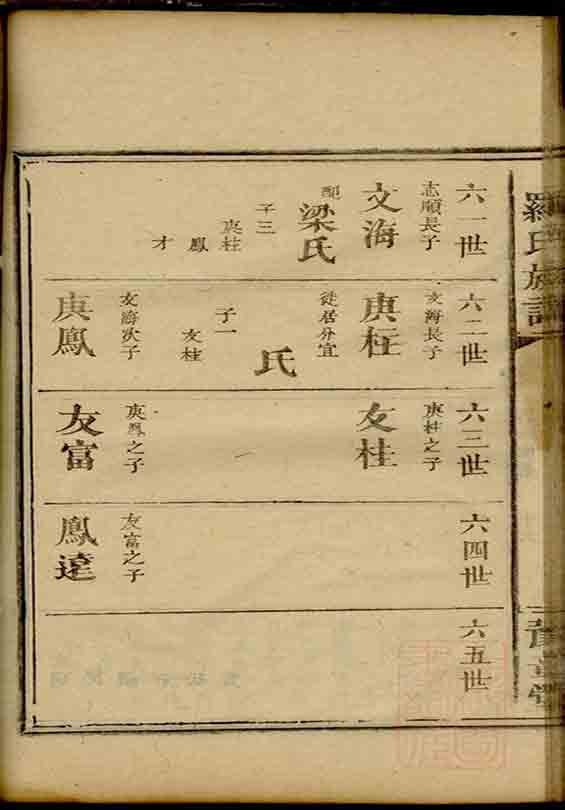 羅氏族譜
六一世
志順長子
文海
配
梁氏
子三
庚桂
鳳
才
六二世
文海長子
庚桂
徙居分宜
氏
子一
友桂
文海次子
庚鳳
六三世
庚桂之子
友桂
庚鳳之子
友富
六四世
友富之子
鳳達
六五世